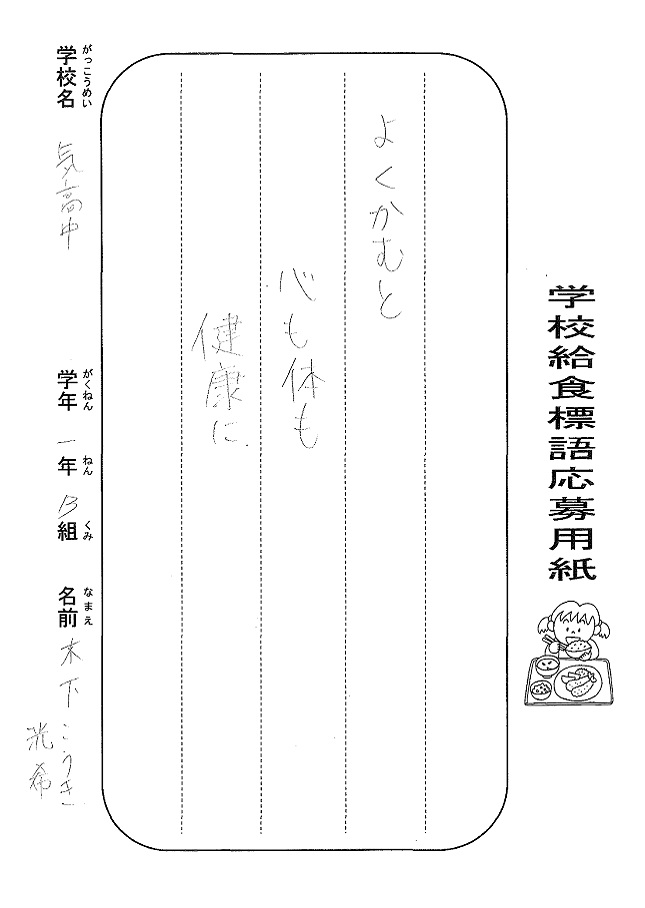 学校給食標語応募用紙
よくかむと
心も体も
健康に
がっこうめい
学校名 気高中
がくねん ねん くみ
学年 一年 B組
なまえ
名前 木下こうき
光希